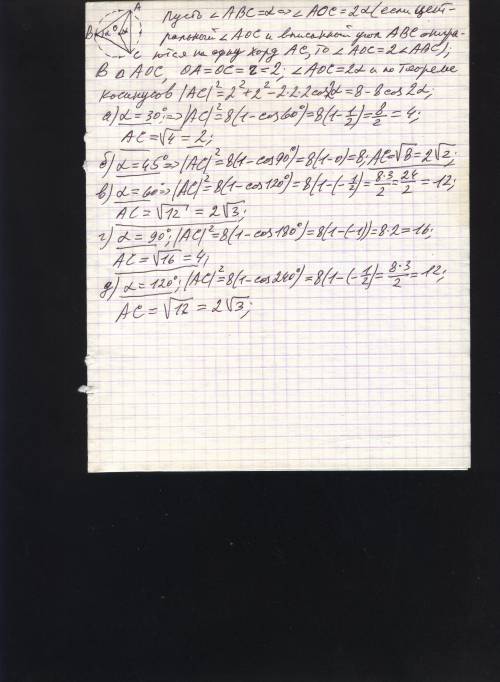 A
B α O 2α
C
Пусть ∠ABC=α⇒∠AOC=2α (если цент-
ральный ∠AOC и вписанный угол ABC опира-
ются на одну хорд AC, то ∠AOC=2∠ABC);
В △AOC, OA=OC=r=2; ∠AOC=2α и по теореме
косинусов |AC|²=2²+2²-2·2·2cos2α=8-8cos2α;
а) α=30°;⇒|AC|²=8(1-cos60°)=8(1-1/2)=8/2=4;
AC=√4=2;
б) α=45°⇒|AC|²=8(1-cos90°)=8(1-0)=8; AC=√8=2√2;
в) α=60⇒|AC|²=8(1-cos120°)=8(1-(-1/2))=8·3/2=24/2=12;
AC=√12=2√3;
г) α=90°; |AC|²=8(1-cos180°)=8(1-(-1))=8·2=16;
AC=√16=4;
д) α=120°; |AC|²=8(1-cos240°)=8(1-(-1/2))=8·3/2=12;
AC=√12=2√3;